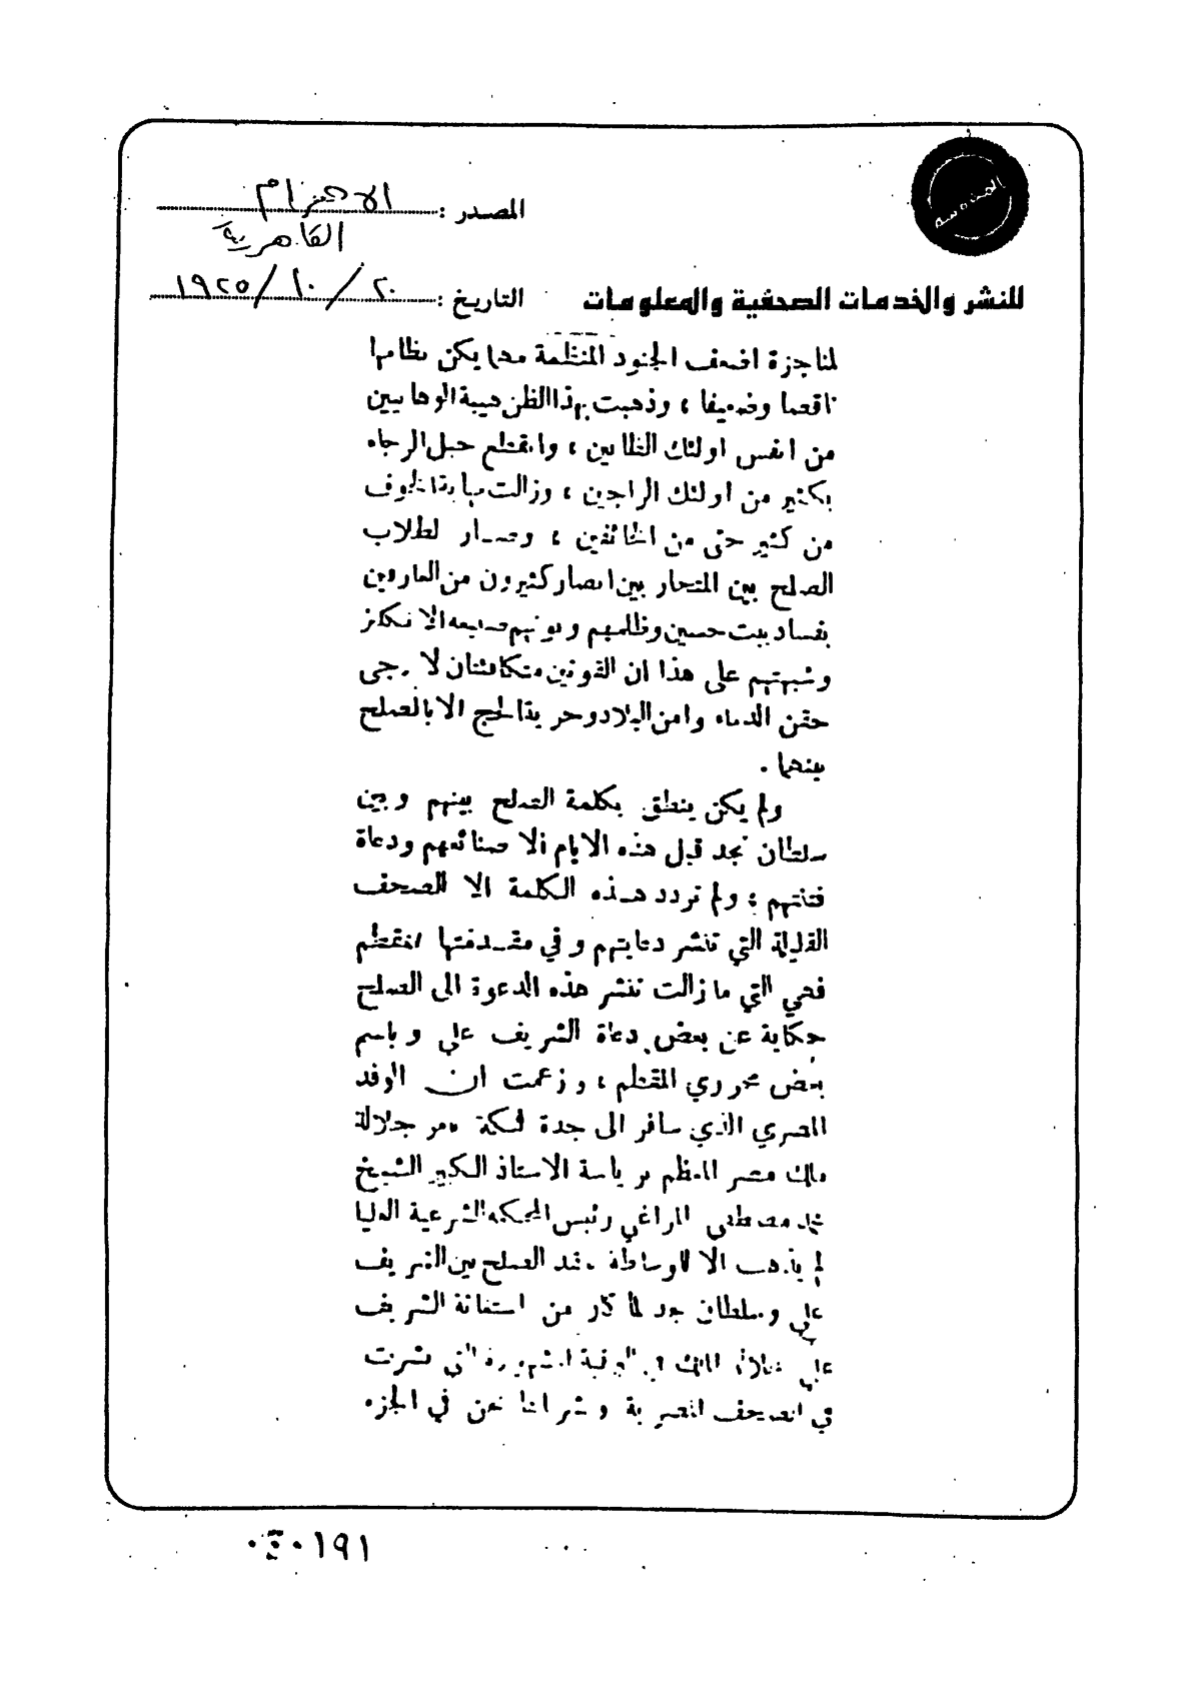 المصدر : الاهرام
القاهرية
للنشر والخدمات الصحفية والمعلومات
التاريخ : ٢٠ / ١٠ / ١٩٢٥
لمناجزة اضعف الجنود المنظمة مهما يكن نظامها
ناقصا وضعيفا ، وذهبت بهذا الظن هيبة الوهابيين
من انفس اولئك الظانين ، وانقطع حبل الرجاء
بكثير من اولئك الراجين ، وزالت مهابة الخوف
من كثير حتى من الخائفين ، وصار لطلاب
الصلح بين المتحاربين انصار كثيرون من العارفين
بفساد بيت حسين وظلمهم وكونهم صنيعة الانكليز
وشبهتهم على هذا ان القوتين متكافئتان لا يرجى
حقن الدماء وامن البلاد وحرية الحج الا بالصلح
بينهما .
ولم يكن ينطق بكلمة الصلح بينهم وبين
سلطان نجد قبل هذه الايام الا صنائعهم ودعاة
فتنتهم ؛ ولم تردد هذه الكلمة الا الصحف
القليلة التي تنشر دعايتهم وفي مقدمتها المقطم
فهي التي ما زالت تنشر هذه الدعوة الى الصلح
حكاية عن بعض دعاة الشريف علي وباسم
بعض محرري المقطم ، وزعمت ان الوفد
المصري الذي سافر الى جدة فمكة بامر جلالة
ملك مصر المعظم برياسة الاستاذ الكبير الشيخ
محمد مصطفى المراغي رئيس المحكمة الشرعية العليا
لم يذهب الا لوساطة عقد الصلح بين الشريف
علي وسلطان نجد لما كان من استغاثة الشريف
علي بجلالة الملك في البرقية المشهورة التي نشرت
في الصحف المصرية ونشرناها نحن في الجزء
٠١٩١